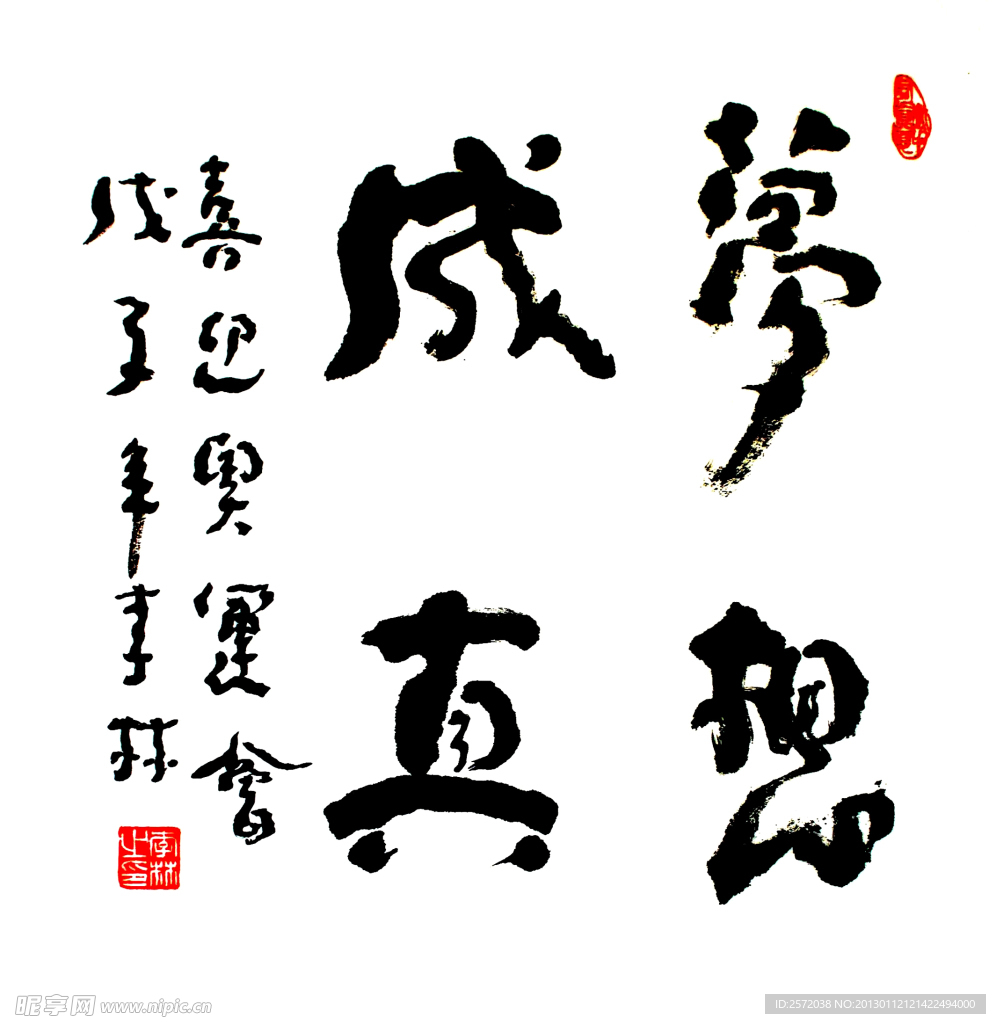 夢想
成真
喜迎奥運會
戊子年李林
李林之印
昵享网 www.nipic.cn
ID:2572038 NO:20130112121422494000